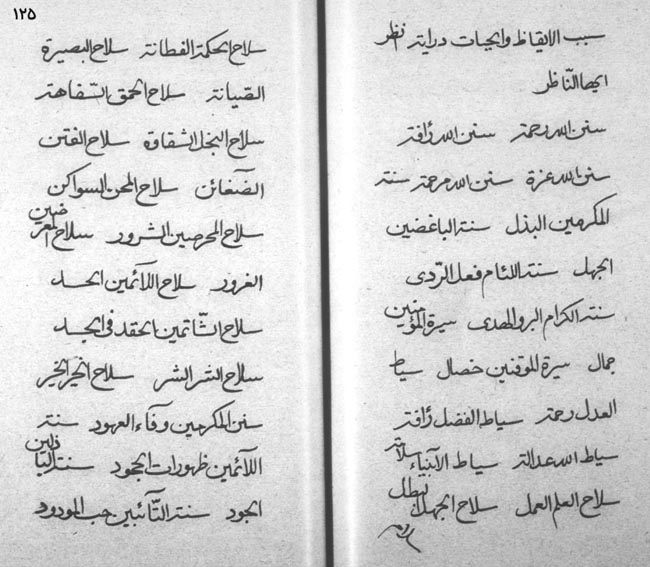 ١٢٥
سبب الايقاظ وايجات دراية نظر
ايها النّاظر
سنن الله رحمة سنن الله رأفة
سنن الله عزة سنن الله مرحمة سنة
المكرمين البذل سنة الباغضين
الجهل سنة اللئام فعل الرّدى
سنة الكرام البر والهدى سيرة المؤمنين
جمال سيرة الموقنين خصال سياط
العدل رحمة سياط الفضل رأفة
سياط الله عدالة سياط الأنبياء
سلاح العلم العمل سلاح الجهل
سلاح الحكمة الفطانة سلاح البصيرة
الصّيانة سلاح الحمق السّفاهة
سلاح البخل الشقاوة سلاح الفتن
الضّغائن سلاح المحن السواكن
سلاح المحرصين الشرور سلاح
الغرور سلاح اللآئمين الحسد
سلاح الشّاتمين الحقد في الجسد
سلاح الشر الشر سلاح الخير الخير
سنن المكرمين وفآء العهود سنة
اللآئمين ظهورات الجحود سنة
الجود سنة التّآئبين حب المودود